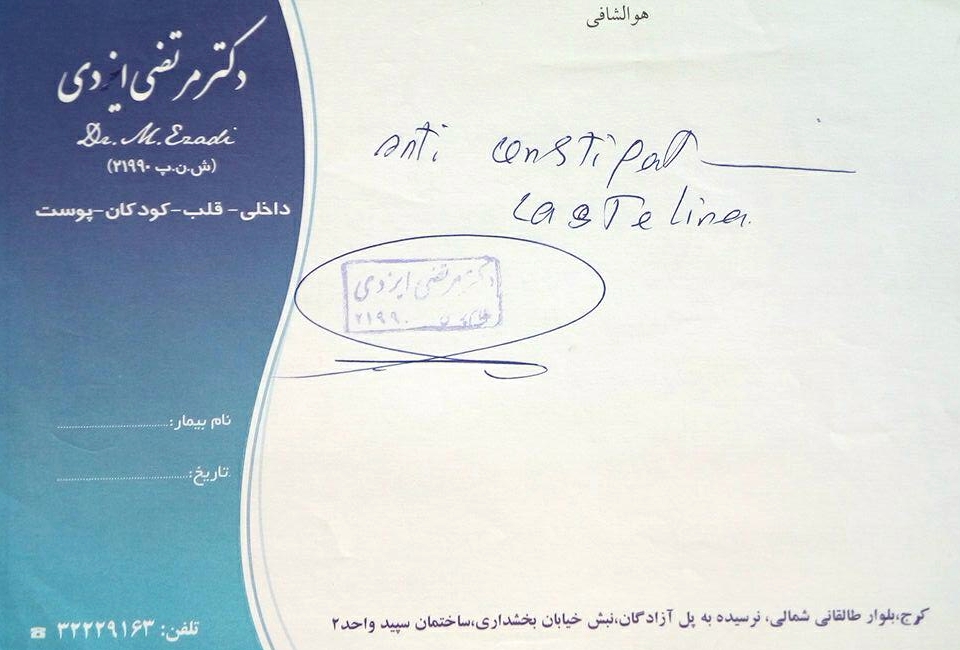 هوالشافی
دکتر مرتضی ایزدی
Dr. M. Ezadi
(ش.ن.پ ۲۱۹۹۰)
داخلی - قلب - کودکان - پوست
anti constipat
castelina
دکتر مرتضی ایزدی
۲۱۹۹۰
نام بیمار:
تاریخ:
تلفن: ۳۲۲۲۹۱۶۳
کرج،بلوار طالقانی شمالی، نرسیده به پل آزادگان،نبش خیابان بخشداری،ساختمان سپید واحد۲